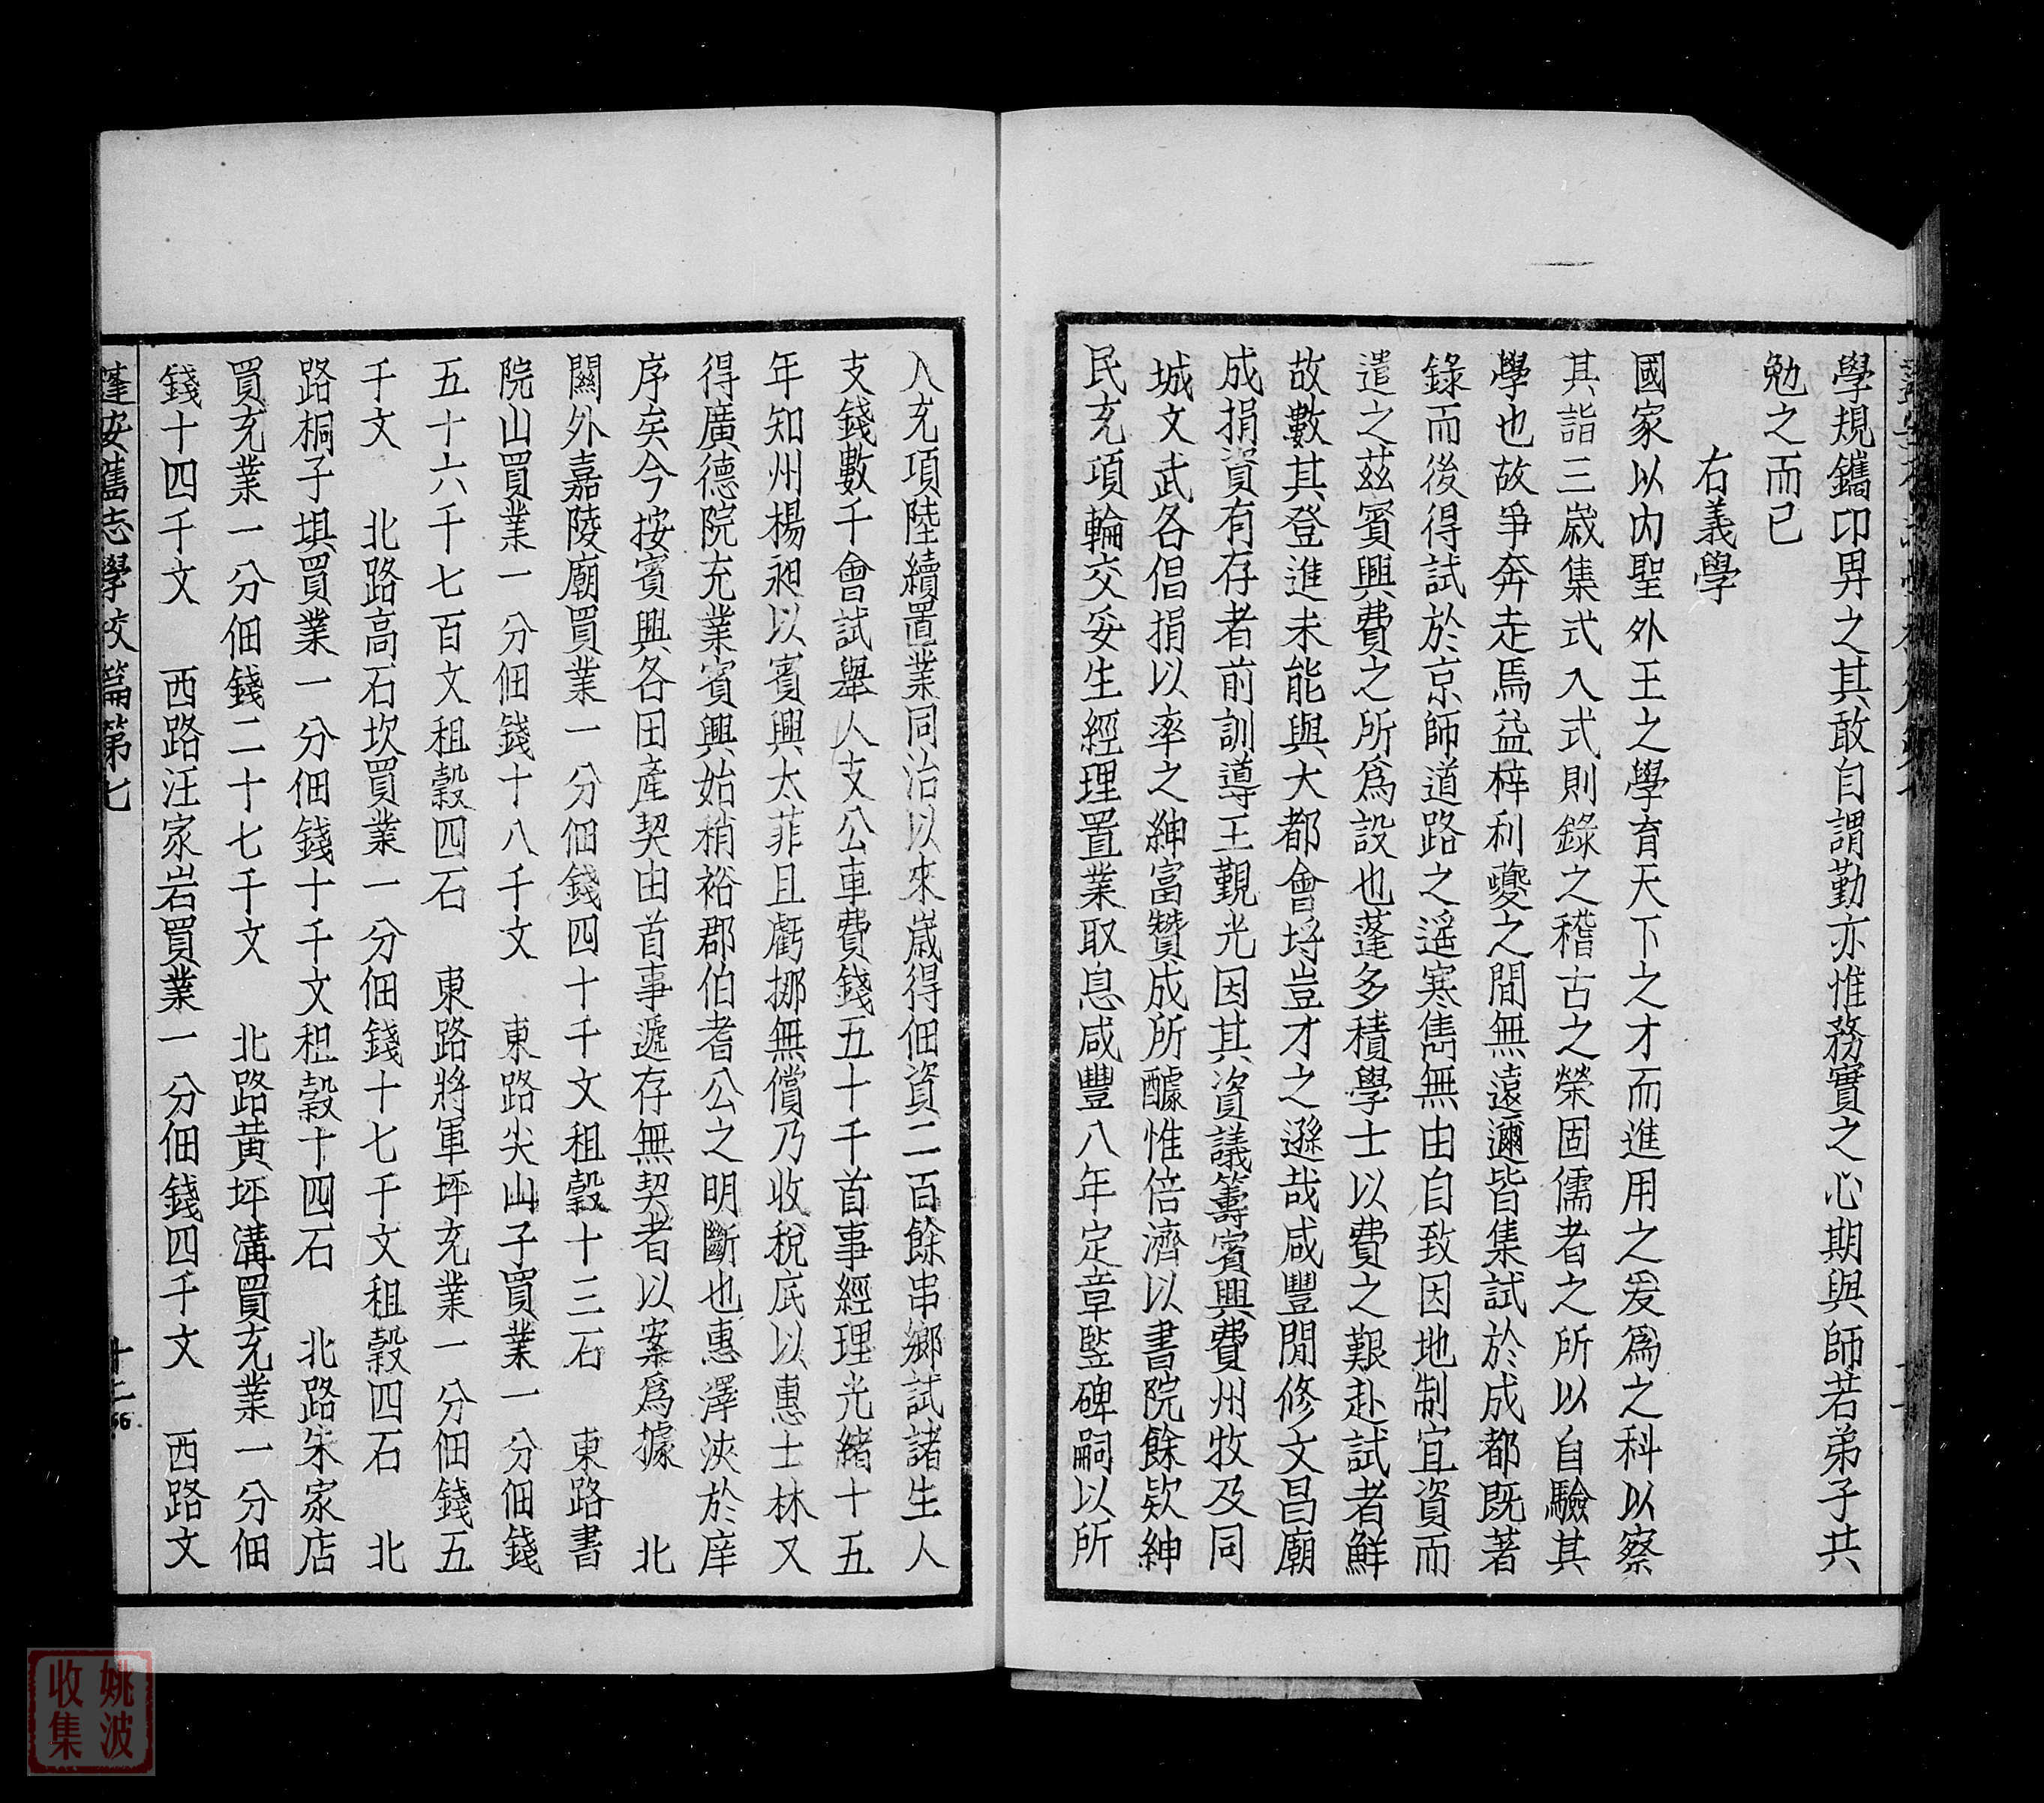 學規鐫印畀之其敢自謂勤亦惟務實之心期與師若弟子共
勉之而已
右義學
國家以內聖外王之學育天下之才而進用之爰爲之科以察
其詣三歲集式入式則錄之稽古之榮固儒者之所以自驗其
學也故爭奔走焉益梓利夔之間無遠邇皆集試於成都既著
錄而後得試於京師道路之遥寒雋無由自致因地制宜資而
遣之茲賓興費之所爲設也蓬多積學士以費之艱赴試者鮮
故數其登進未能與大都會埒豈才之遜哉咸豐閒修文昌廟
成捐資有存者前訓導王觀光因其資議籌賓興費州牧及同
城文武各倡捐以率之紳富贊成所醵惟倍濟以書院餘欵紳
民充項輪交妥生經理置業取息咸豐八年定章豎碑嗣以所
入充項陸續置業同治以來歲得佃資二百餘串鄉試諸生人
支錢數千會試舉人支公車費錢五十千首事經理光緒十五
年知州楊昶以賓興太菲且虧挪無償乃收稅底以惠士林又
得廣德院充業賓興始稍裕郡伯耆公之明斷也惠澤浹於庠
序矣今按賓興各田產契由首事遞存無契者以案爲據　北
關外嘉陵廟買業一分佃錢四十千文租穀十三石　東路書
院山買業一分佃錢十八千文　東路尖山子買業一分佃錢
五十六千七百文租穀四石　東路將軍坪充業一分佃錢五
千文　北路高石坎買業一分佃錢十七千文租穀四石　北
路桐子埧買業一分佃錢十千文租穀十四石　北路朱家店
買充業一分佃錢二十七千文　北路黄坪溝買充業一分佃
錢十四千文　西路汪家岩買業一分佃錢四千文　西路文
蓬安舊志學校篇第七
十二
66
姚波
收集